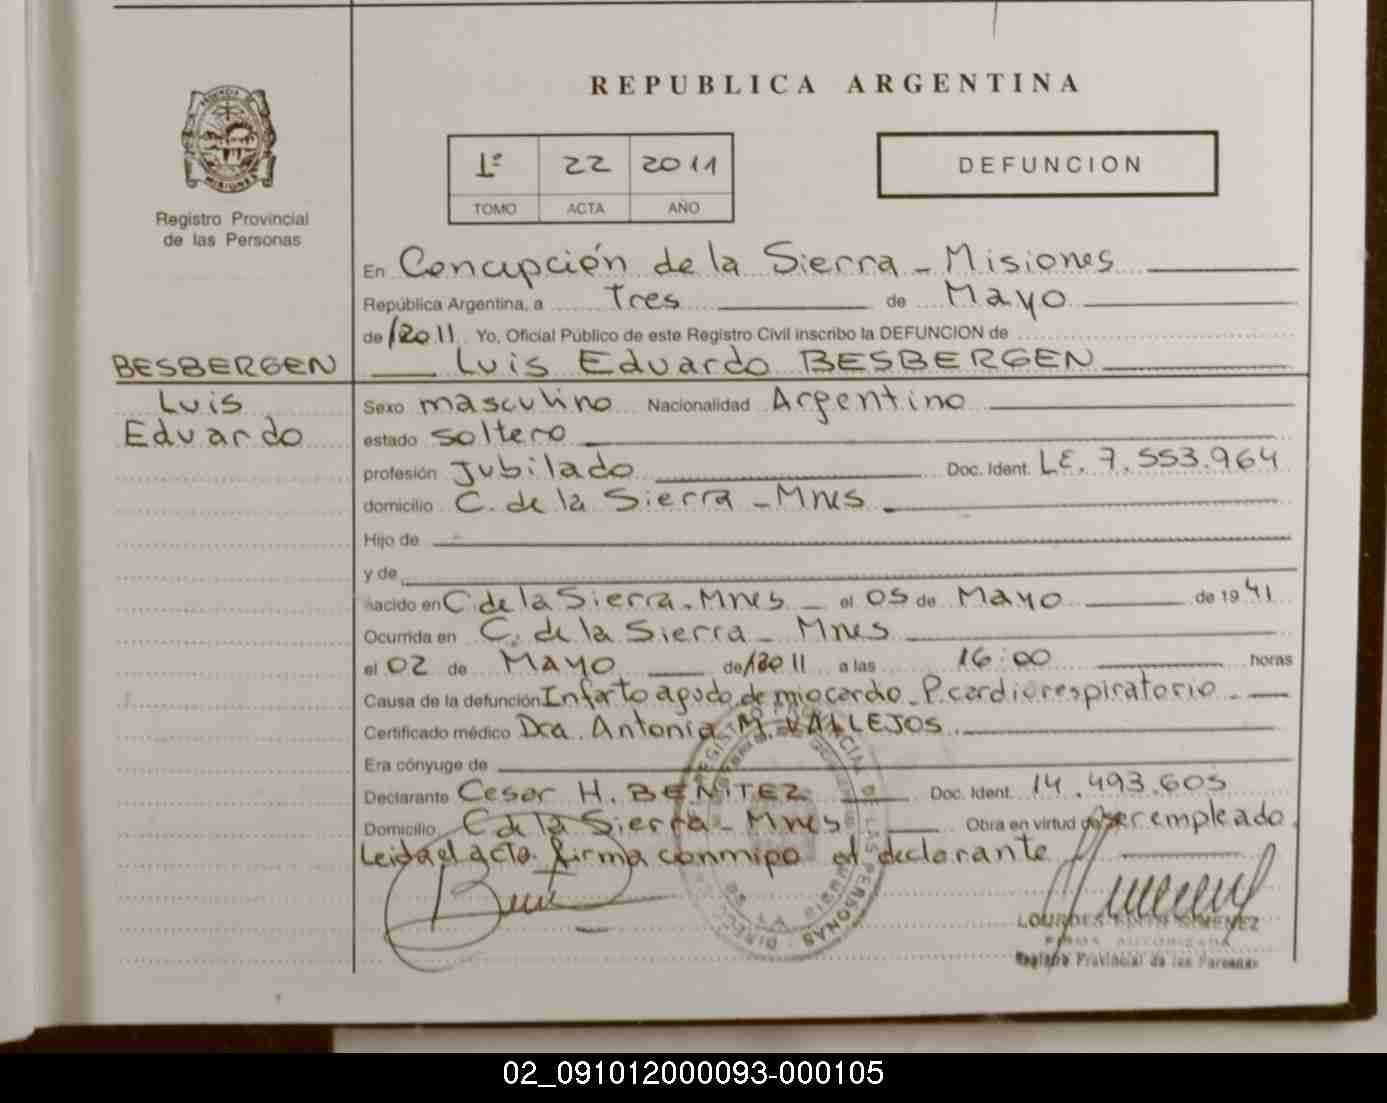 REPUBLICA ARGENTINA
1º 22 2011
TOMO ACTA AÑO
DEFUNCION
PROVINCIA DE
MISIONES
Registro Provincial
de las Personas
En Concepción de la Sierra - Misiones
República Argentina, a Tres de Mayo
de /2011 Yo, Oficial Público de este Registro Civil inscribo la DEFUNCION de
BESBERGEN
Luis
Eduardo
Luis Eduardo BESBERGEN
Sexo masculino Nacionalidad Argentino
estado soltero
profesión Jubilado Doc. Ident. LE. 7.553.964
domicilio C. de la Sierra - Mnes
Hijo de
y de
nacido en C. de la Sierra. Mnes - el 05 de Mayo de 1941
Ocurrida en C. de la Sierra - Mnes
el 02 de Mayo de /2011 a las 16:00 horas
Causa de la defunción Infarto agudo de miocardio - P. cardiorespiratorio -
Certificado médico Dra. Antonia M. VALLEJOS.
Era cónyuge de
Declarante Cesar H. BENITEZ Doc. Ident. 14.493.605
Domicilio C de la Sierra - Mnes Obra en virtud de ser empleado.
Leida el acta. firma conmigo el declarante
LOURDES EDITH GIMENEZ
FIRMA AUTORIZADA
Registro Provincial de las Personas
02_091012000093-000105